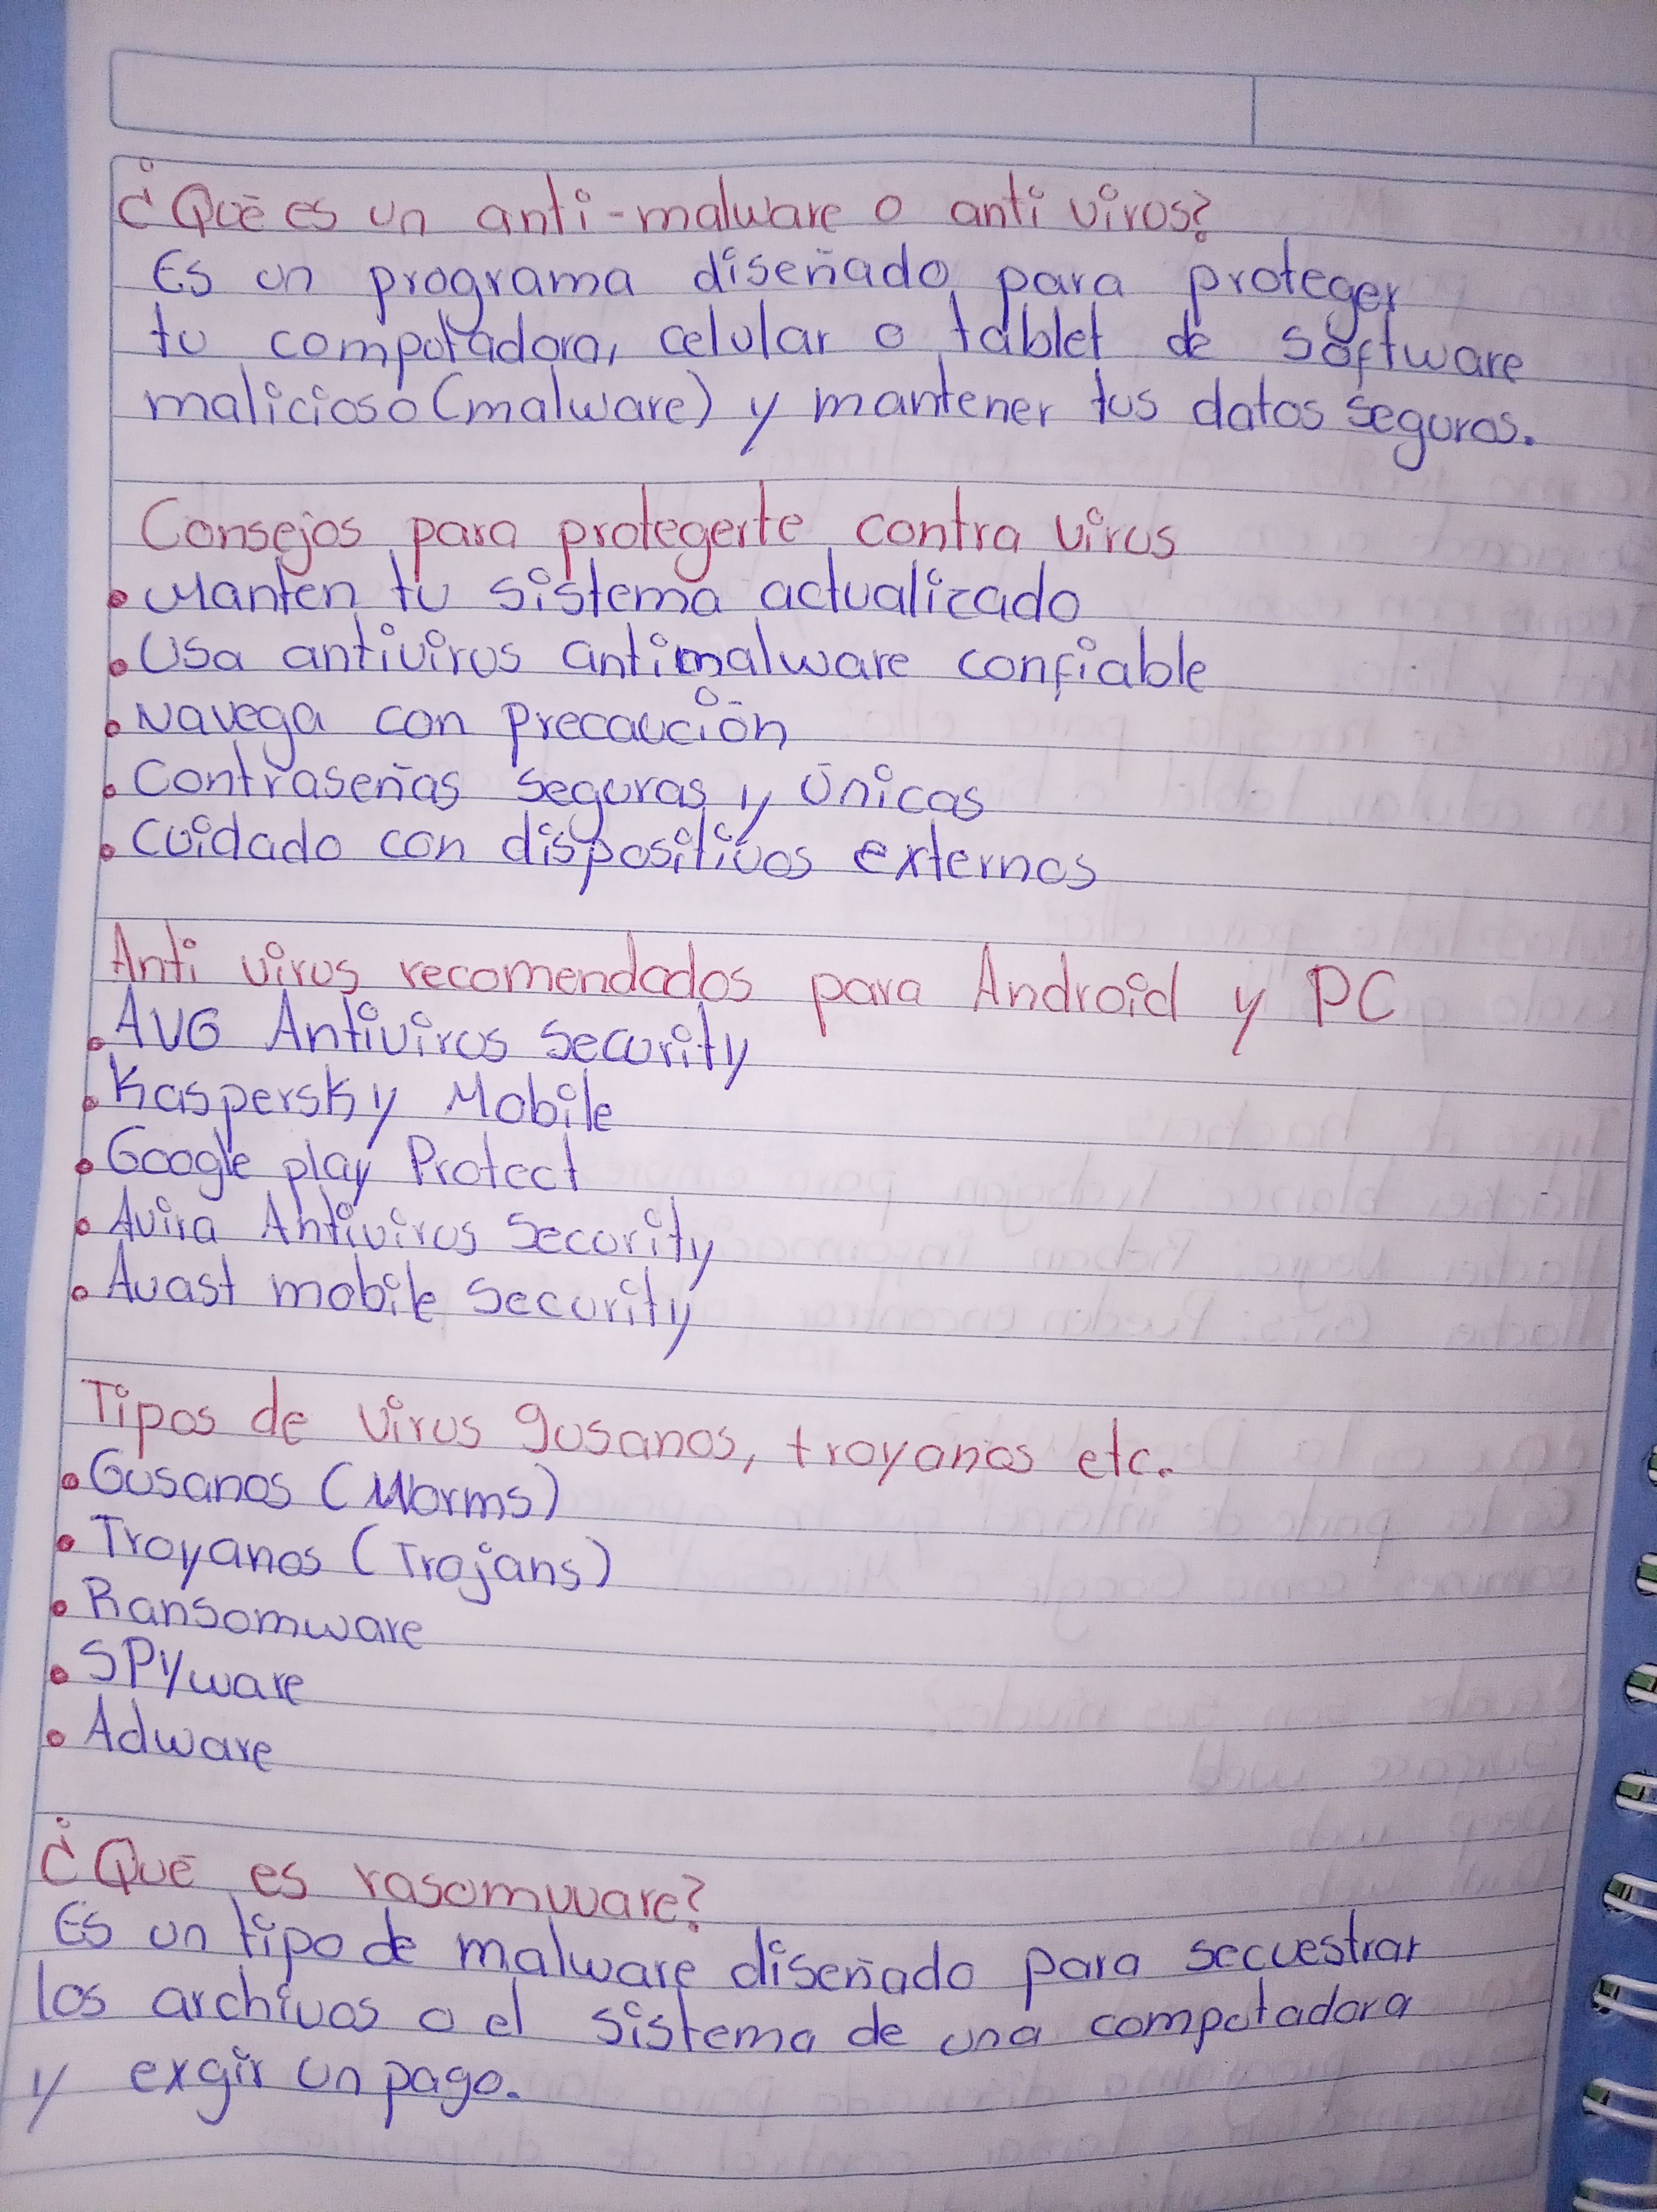 ¿Qué es un anti-malware o anti virus?
Es un programa diseñado para proteger
tu computadora, celular o tablet de software
malicioso (malware) y mantener tus datos seguros.
Consejos para protegerte contra virus
• Manten tu sistema actualizado
• Usa antivirus antimalware confiable
• Navega con Precaución
• Contraseñas seguras y únicas
• Cuidado con dispositivos externos
Anti virus recomendados para Android y PC
• AVG Antivirus Security
• Kaspersky Mobile
• Google play Protect
• Avira Antivirus Security
• Avast mobile Security
Tipos de virus gusanos, troyanos etc.
• Gusanos (Worms)
• Troyanos (Trojans)
• Ransomware
• SPyware
• Adware
¿Qué es rasomware?
Es un tipo de malware diseñado para secuestrar
los archivos o el sistema de una computadora
y exgir un pago.